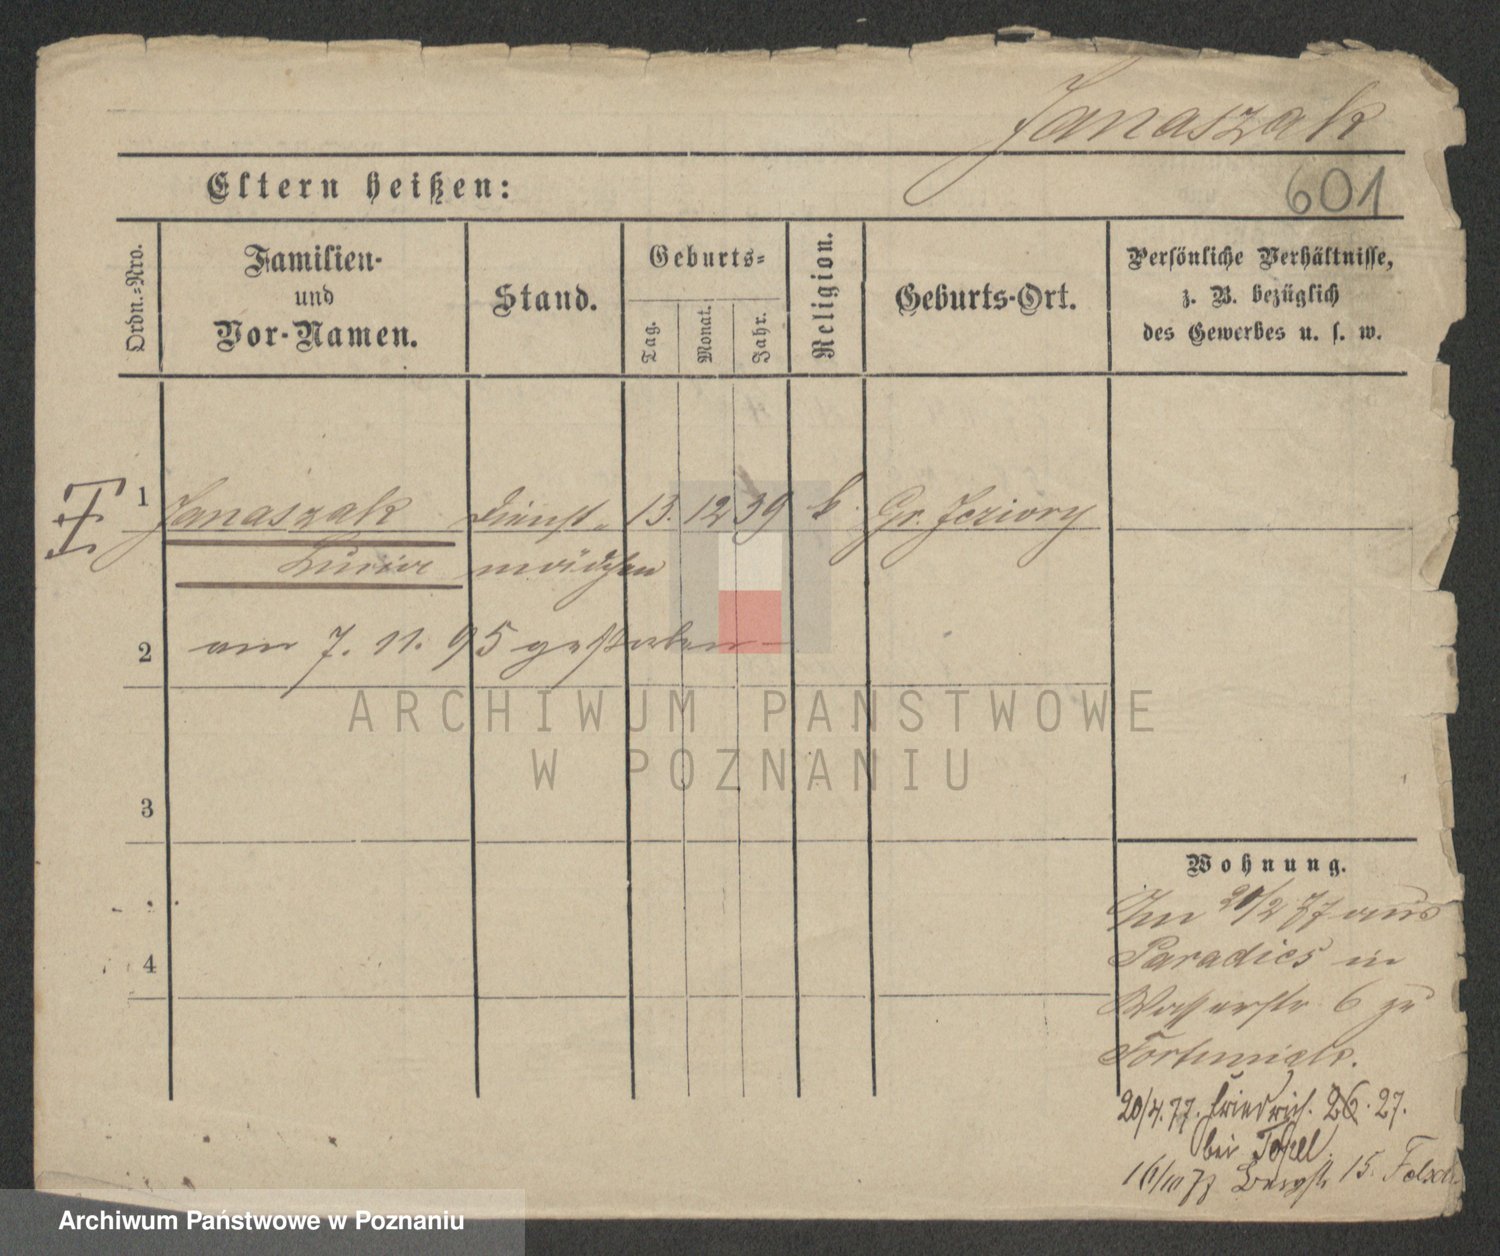 Janaszak
601
Eltern heißen:
Ordn.=Nro.
Familien-
und
Vor-Namen.
Stand.
Geburts=
Tag.
Monat.
Jahr.
Religion.
Geburts-Ort.
Persönliche Verhältnisse,
z. B. bezüglich
des Gewerbes u. s. w.
1 Janaszak Dienst- 13. 12 39 k. Gr. Jeziory
Lucia mädchen
2 am 7. 11. 95 gestorben
ARCHIWUM PAŃSTWOWE
W POZNANIU
3
Wohnung.
Im 20/2 77 aus
Paradies in
4
Wasserstr 6 zu
20/4. 77. Friedrich. 26. 27.
bei
16/10 77 Bergstr 15.
Archiwum Państwowe w Poznaniu